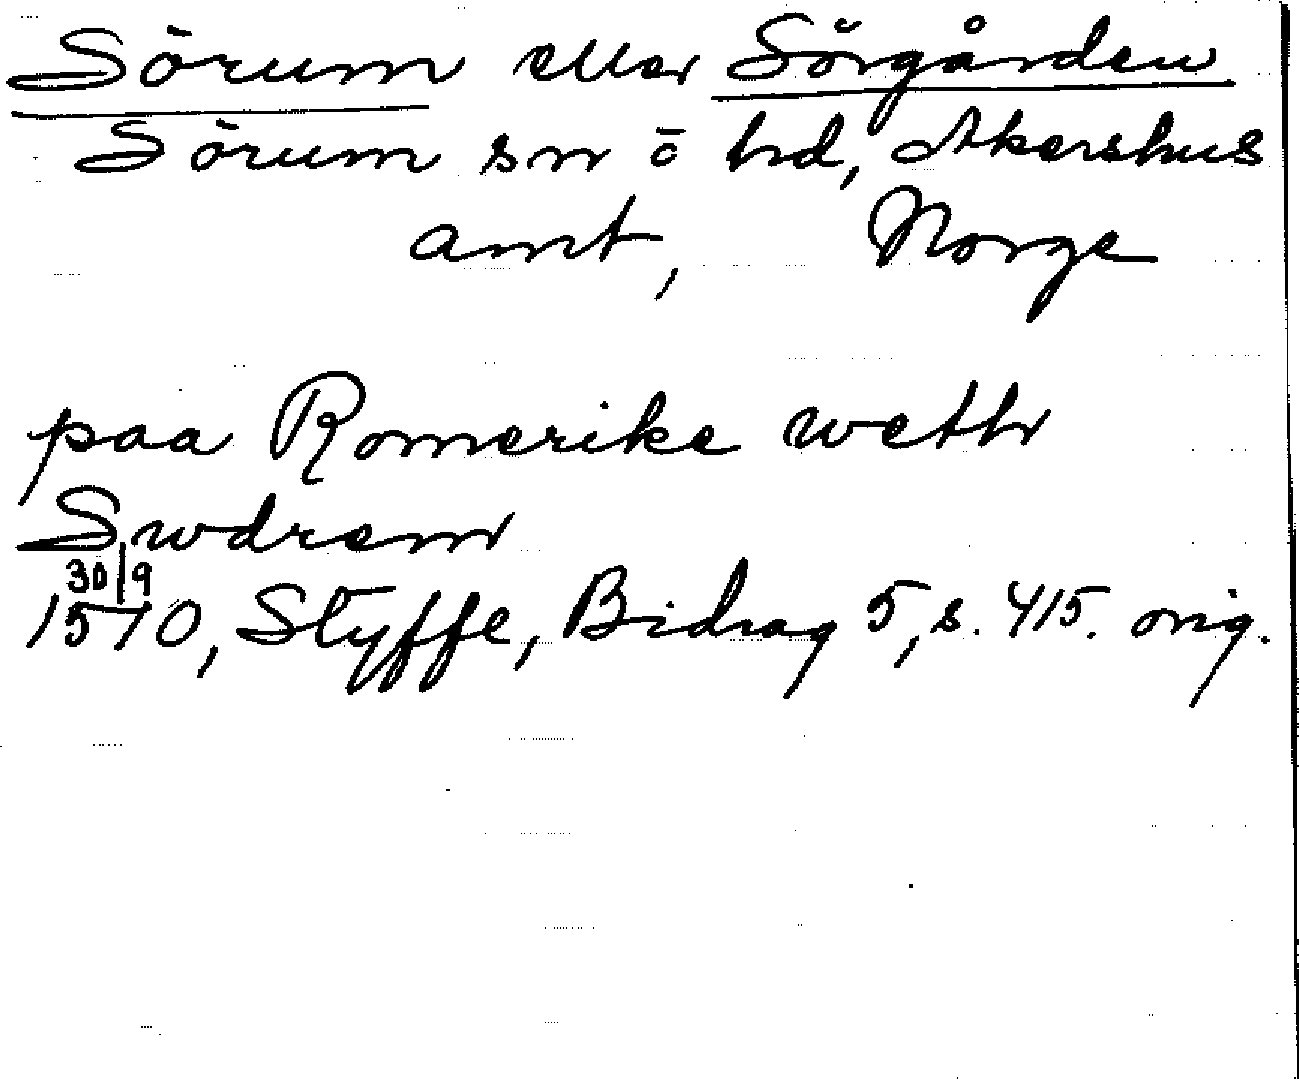 Sörum eller Sörgården
Sörum sn ö hd, Akershus
amt, Norge
paa Romerike weth
Swdrem
30/9
1510, Styffe, Bidrag 5, s. 415. orig.